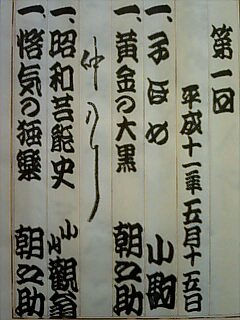 第一回
平成十一年五月十五日
一、子ほめ 小駒
一、黄金の大黒 朝之助
仲入り
一、昭和芸能史 小山観翁
一、悋気の独楽 朝之助